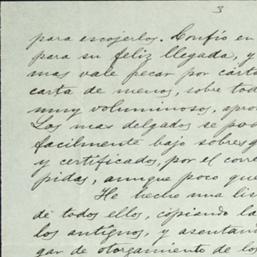 3
para escojerlos. Confío en
para su feliz llegada, y
mas vale pecar por carta
carta de menos, sobre tod
muy voluminosos, apro
Los mas delgados se po
facilmente bajo sobres
y certificados, por el corre
pidas, aunque poco que
He hecho una lis
de todos ellos, copiando la
los antiguos, y asentan
gar de otorgamiento de los